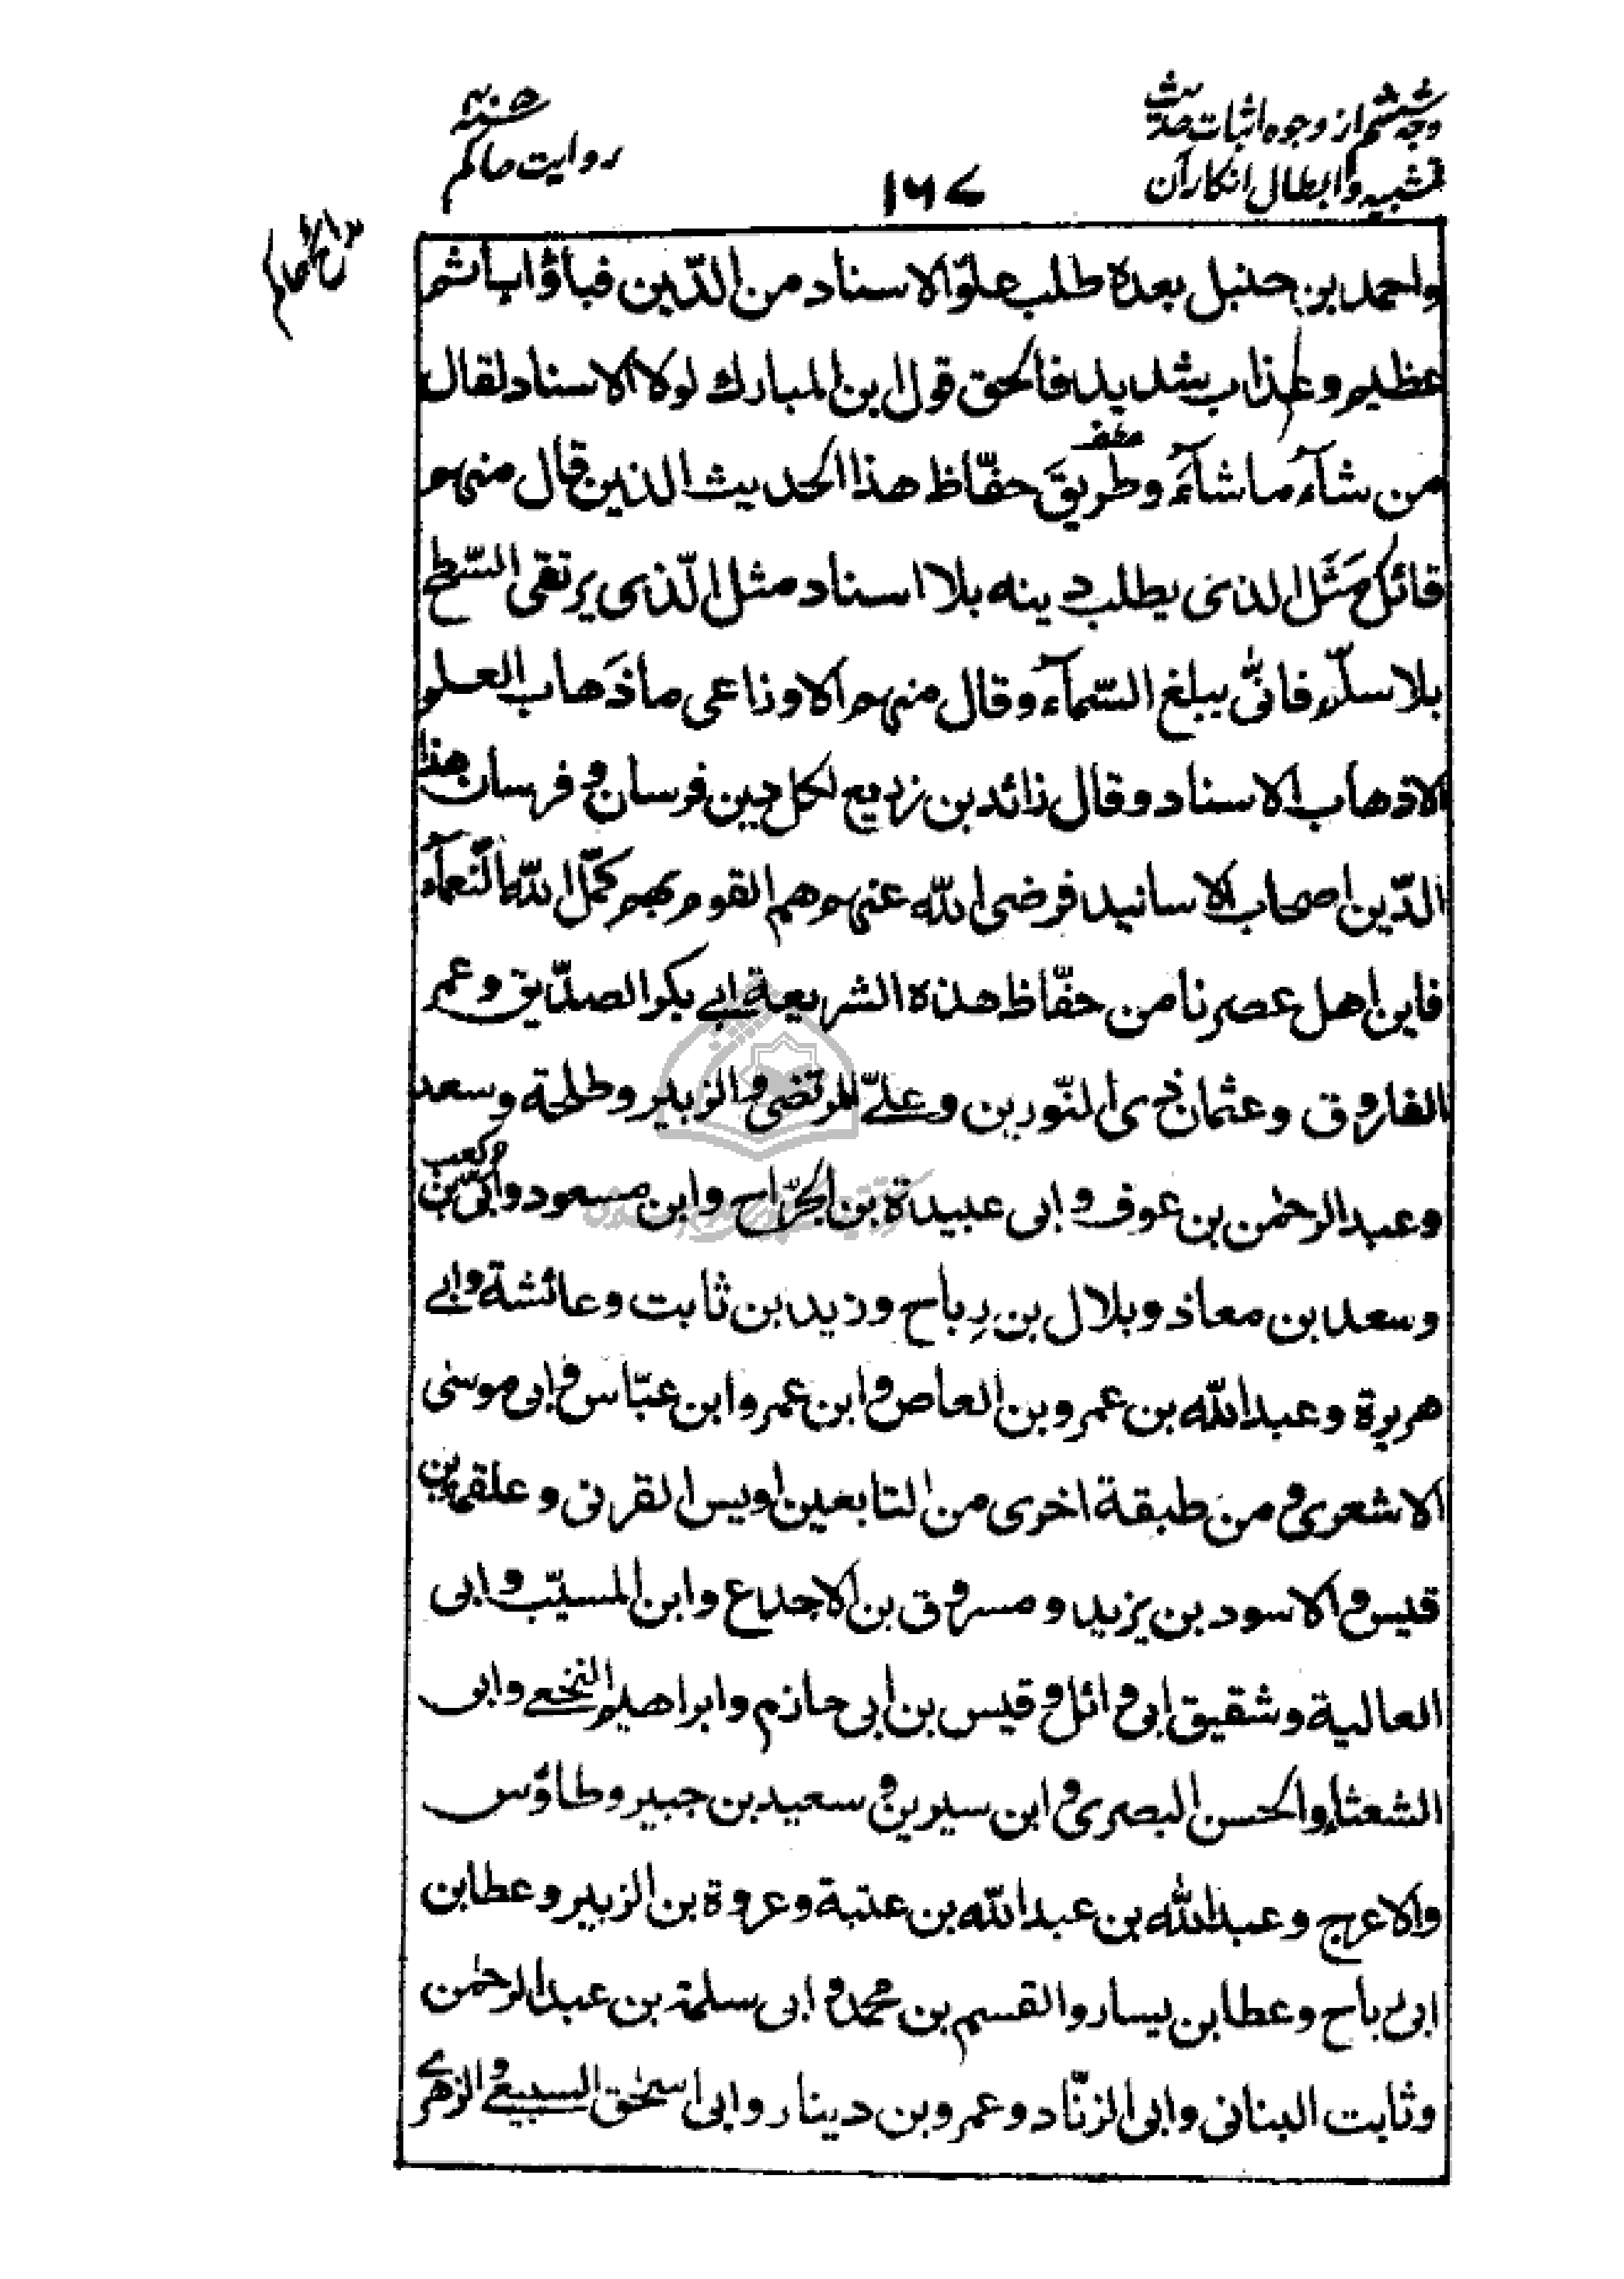 وجه ششم از وجوه اثبات حدیث
تشبیه و ابطال انکار آن
۱۶۷
روایت حاکم
واحمد بن حنبل بعده طلب علوّ الاسناد من الدّین فباؤا باثم
عظیم وعذاب شدید فالحق قول ابن المبارك لولا الاسناد لقال
من شآء ما شآء وطریقَ حفّاظ هذا الحدیث الذین قال منهم
قائل مَثَل الذی یطلب دینه بلا اسناد مثل الّذی یرتقی السّطح
بلا سلّم فانّی یبلغ السّمآء وقال منهم الاوزاعی ما ذَهاب العلم
الا ذهاب الاسناد وقال زائد بن زریع لکل دین فرسان وفرسان هذا
الدّین اصحاب الاسانید فرضی الله عنهم هم القوم بهم کمّل الله النّعمآء
فاین اهل عصرنا من حفّاظ هذه الشریعة ابی بکر الصدّیق وعمر
الفاروق وعثمان ذی النّورین وعلیّ المرتضی والزبیر وطلحة وسعد
وعبد الرحمٰن بن عوف وابی عبیدة بن الجرّاح وابن مسعود وابیّ بن کعب
وسعد بن معاذ وبلال بن رِباح وزید بن ثابت وعائشة وابی
هریرة وعبد الله بن عمرو بن العاص وابن عمر وابن عبّاس وابی موسٰی
الاشعری ومن طبقة اخری من التابعین اویس القرنی وعلقمة بن
قیس والاسود بن یزید ومسروق بن الاجدع وابن المسیّب وابی
العالیة وشقیق ابی وائل وقیس بن ابی حازم وابراهیم النخعی وابی
الشعثاء والحسن البصری وابن سیرین وسعید بن جبیر وطاؤس
والاعرج وعبد الله بن عبد الله بن عتبة وعروة بن الزبیر وعطا بن
ابی رباح وعطا بن یسار والقسم بن محمد وابی سلمة بن عبد الرحمٰن
وثابت البنانی وابی الزنّاد وعمرو بن دینار وابی اسحٰق السبیعی والزهری